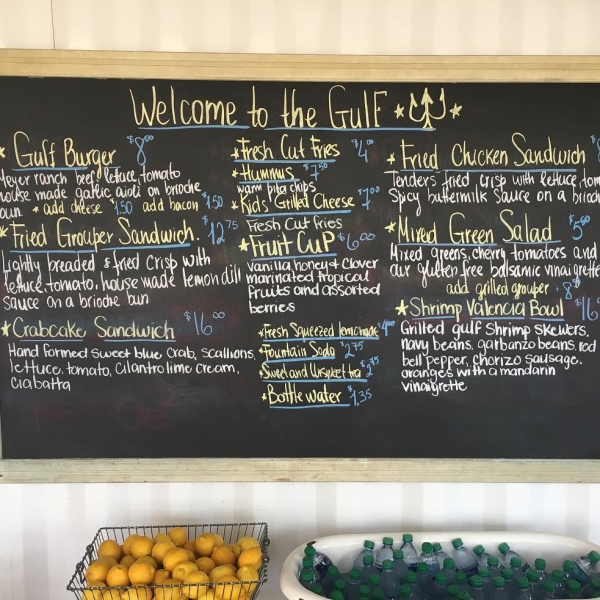 Welcome to the Gulf
Gulf Burger $8.00
Meyer ranch beef, lettuce, tomato
house made garlic aioli on brioche
bun * add cheese $1.50 add bacon $1.50
Fried Grouper Sandwich. $12.75
Lightly breaded & fried crisp with
lettuce, tomato, house made lemon dill
sauce on a brioche bun
Crabcake Sandwich $16.00
Hand formed sweet blue crab, scallions,
lettuce, tomato, cilantro lime cream,
ciabatta
Fresh Cut Fries $4.00
Hummus $7.50
warm pita chips
Kid's Grilled Cheese $7.00
Fresh cut fries
Fruit Cup $6.00
Vanilla, honey & clover
marinated tropical
fruits and assorted
berries
Fresh Squeezed lemonade
Fountain Soda $2.75
Sweet and Unsweet tea $2.75
Bottle water $1.35
Fried Chicken Sandwich $8
Tenders fried crisp with lettuce, tom
Spicy buttermilk sauce on a brioch
Mixed Green Salad $5.00
Mixed greens, cherry tomatoes and
our gluten free balsamic vinaigrette
add grilled grouper
Shrimp Valencia Bowl $16
Grilled gulf shrimp skewers,
navy beans, garbanzo beans, red
bell pepper, chorizo sausage,
oranges with a mandarin
vinaigrette